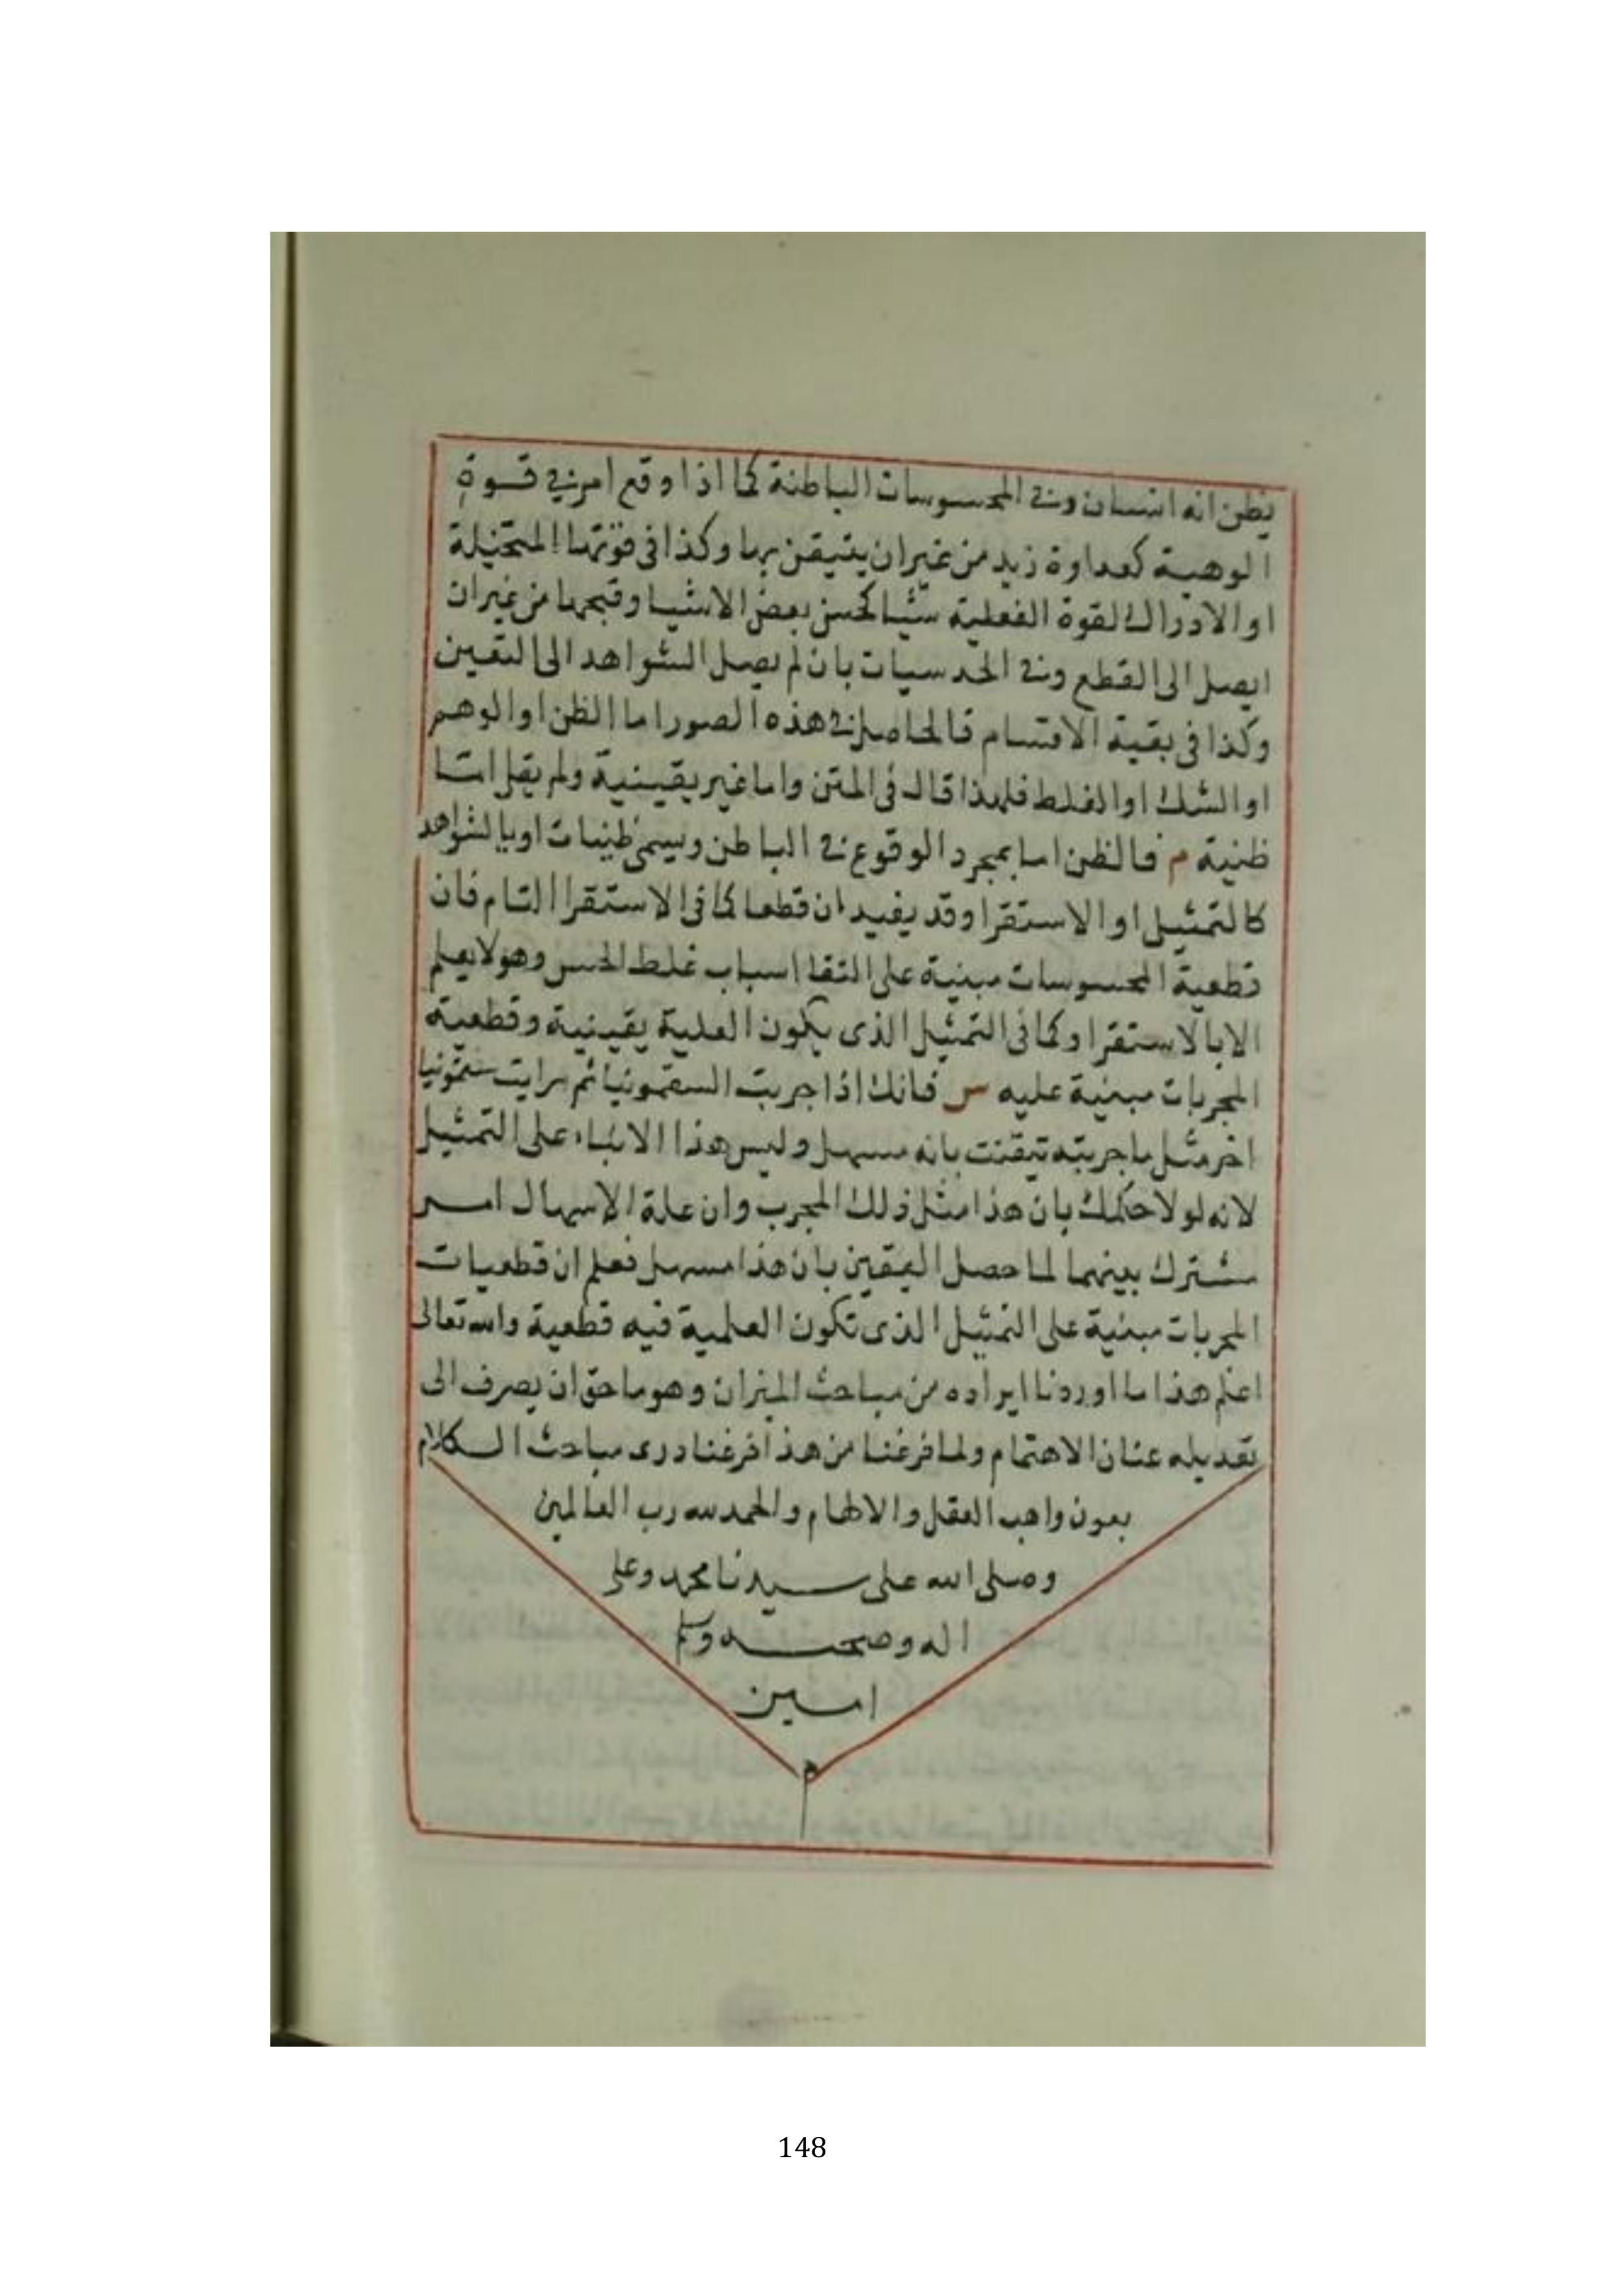 يظن انه انسان وفى المحسوسات الباطنة كما اذا وقع امر فى قسوة
الوهمية كعداوة زيد من غير ان يتيقن بها وكذا فى قوتها المتخيلة
او الادراك القوة الفعلية شيا كحسن بعض الاشيا وقبحها من غير ان
ايصل الى القطع وفى الحدسيات بان لم يصل الشواهد الى اليقين
وكذا فى بقية الاقسام فالحاصل فى هذه الصور اما الظن او الوهم
او الشك او الغلط فلهذا قال فى المتن واما غير يقينية ولم يقل اما
ظنية م فالظن اما بمجرد الوقوع فى الباطن ويسمى ظنيات او بالشواهد
كالتمثيل او الاستقرا وقد يفيد ان قطعا كما فى الاستقرا التام فان
قطعية المحسوسات مبنية على انتفا اسباب غلط الحس وهو لا يعلم
الا بالاستقرا وكما فى التمثيل الذى يكون العلية يقينية وقطعية
المجربات مبنية عليه س فانك اذا جربت السقمونيا ثم رايت سقمونيا
اخر مثل ما جربته تيقنت بانه مسهل وليس هذا الا بناء على التمثيل
لانه لولا حكمك بان هذا مثل ذلك المجرب وان علة الاسهال امر
مشترك بينهما لما حصل اليقين بان هذا مسهل فعلم ان قطعيات
المجربات مبنية على التمثيل الذى تكون العلمية فيه قطعية والله تعالى
اعلم هذا ما اوردنا ايراده من مباحث الميزان وهو ما حق ان يصرف الى
تعديله عنان الاهتمام ولما فرغنا من هذا فرغنا درى مباحث الكلام
بعون واهب العقل والالهام والحمد لله رب العالمين
وصلى الله على سيدنا محمد وعلى
اله وصحبه وسلم
امين
م
148